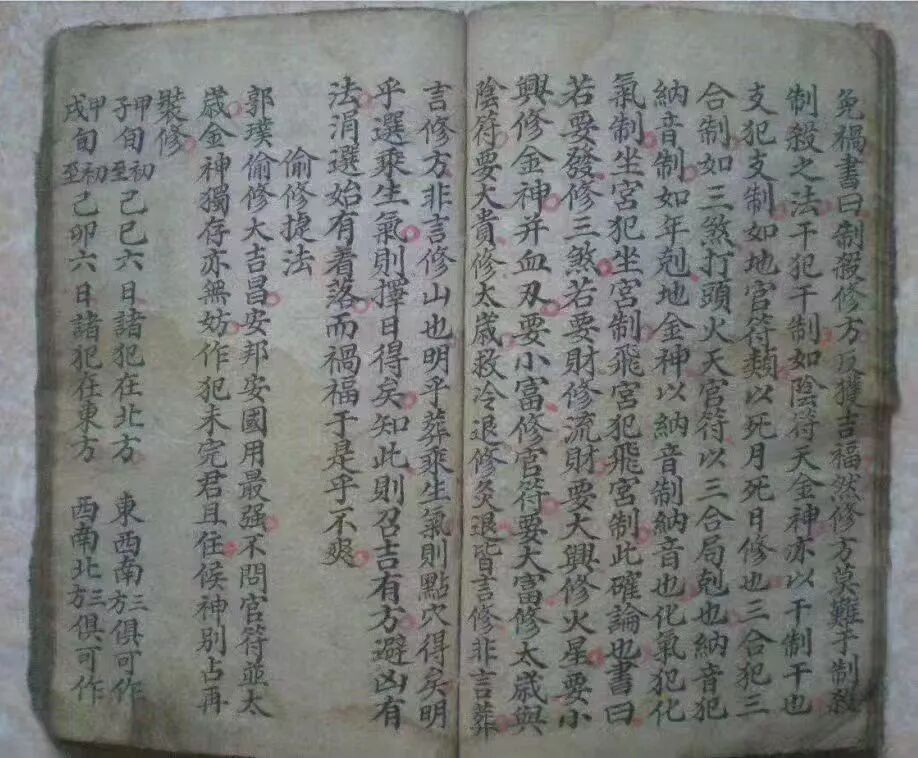 免禍書曰制殺修方反獲吉福然修方莫難于制殺
制殺之法干犯干制如陰符天金神亦以干制干也
支犯支制如地官符類以死月死日修也三合犯三
合制如三煞打頭火天官符以三合局剋也納音犯
納音制如年剋地金神以納音制納音也化氣犯化
氣制坐宮犯坐宮制飛宮犯飛宮制此確論也書曰
若要發修三煞若要財修流財要大興修火星要小
興修金神并血刃要小富修官符要大富修太歲與
陰符要大貴修太歲救冷退修灸退皆言修非言葬
言修方非言修山也明乎葬乘生氣則點穴得矣明
乎選乘生氣則擇日得矣知此則召吉有方避凶有
法涓選始有着落而禍福于是乎不爽
偷修捷法
郭璞偷修大吉昌安邦安國用最强不問官符並太
歲金神獨存亦無妨作犯未完君且住候神别占再
裝修
甲子旬初至己巳六日諸犯在北方 東西南三方俱可作
甲戌旬初至己卯六日諸犯在東方 西南北三方俱可作